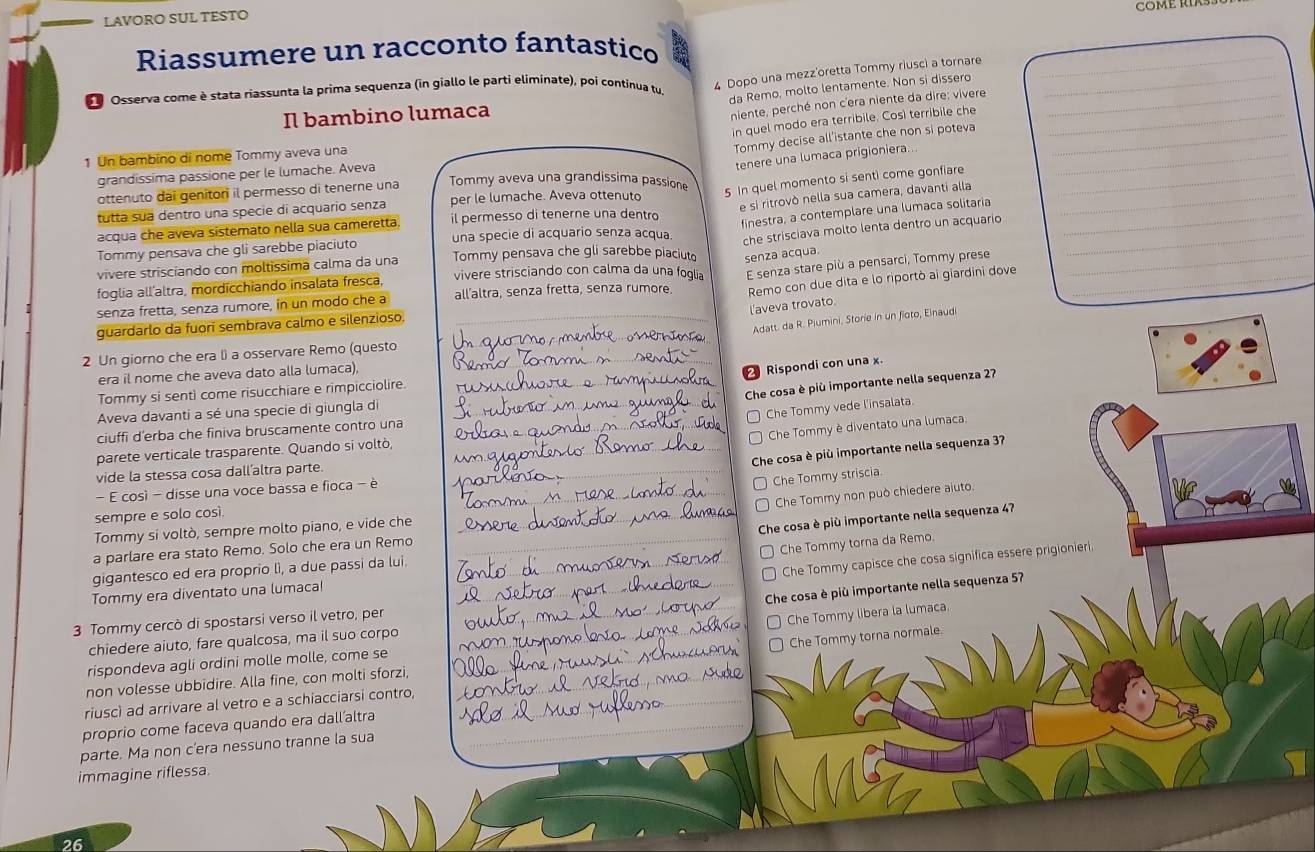 LAVORO SUL TESTO
Riassumere un racconto fantastico
1 Osserva come è stata riassunta la prima sequenza (in giallo le parti eliminate), poi continua tu.
Il bambino lumaca
1 Un bambino di nome Tommy aveva una
grandissima passione per le lumache. Aveva
ottenuto dai genitori il permesso di tenerne una
tutta sua dentro una specie di acquario senza
acqua che aveva sistemato nella sua cameretta.
Tommy pensava che gli sarebbe piaciuto
vivere strisciando con moltissima calma da una
foglia all'altra, mordicchiando insalata fresca,
senza fretta, senza rumore, in un modo che a
guardarlo da fuori sembrava calmo e silenzioso.
2 Un giorno che era lì a osservare Remo (questo
era il nome che aveva dato alla lumaca),
Tommy si sentì come risucchiare e rimpicciolire.
Aveva davanti a sé una specie di giungla di
ciuffi d'erba che finiva bruscamente contro una
parete verticale trasparente. Quando si voltò,
vide la stessa cosa dall'altra parte.
– E così – disse una voce bassa e fioca – è
sempre e solo così.
Tommy si voltò, sempre molto piano, e vide che
a parlare era stato Remo. Solo che era un Remo
gigantesco ed era proprio lì, a due passi da lui.
Tommy era diventato una lumaca!
3 Tommy cercò di spostarsi verso il vetro, per
chiedere aiuto, fare qualcosa, ma il suo corpo
rispondeva agli ordini molle molle, come se
non volesse ubbidire. Alla fine, con molti sforzi,
riuscì ad arrivare al vetro e a schiacciarsi contro,
proprio come faceva quando era dall'altra
parte. Ma non c'era nessuno tranne la sua
immagine riflessa.
26
Tommy aveva una grandissima passione
per le lumache. Aveva ottenuto
il permesso di tenerne una dentro
una specie di acquario senza acqua.
Tommy pensava che gli sarebbe piaciuto
vivere strisciando con calma da una foglia
all'altra, senza fretta, senza rumore.
Un giorno, mentre osservava
Remo Tommi si sentì
risucchiare e rimpicciolire
Si ritrovò in una giungla di
erba, e quando si voltò, vide
un gigantesco Remo che
parlava.
Tommi si rese conto di
essere diventato una lumaca
Tentò di muoversi verso
il vetro per chiedere
aiuto, ma il suo corpo
non rispondeva come voleva
alla fine, riuscì schiacciarsi
contro il vetro, ma vide
solo il suo riflesso
COME RIASSU
4 Dopo una mezz'oretta Tommy riuscì a tornare
da Remo, molto lentamente. Non si dissero
niente, perché non c'era niente da dire: vivere
in quel modo era terribile. Così terribile che
Tommy decise all'istante che non si poteva
tenere una lumaca prigioniera...
5 In quel momento si sentì come gonfiare
e si ritrovò nella sua camera, davanti alla
finestra, a contemplare una lumaca solitaria
che strisciava molto lenta dentro un acquario
senza acqua.
E senza stare più a pensarci, Tommy prese
Remo con due dita e lo riportò ai giardini dove
l'aveva trovato.
Adatt. da R. Piumini, Storie in un fiato, Einaudi
2 Rispondi con una x.
Che cosa è più importante nella sequenza 2?
Che Tommy vede l'insalata.
Che Tommy è diventato una lumaca.
Che cosa è più importante nella sequenza 3?
Che Tommy striscia.
Che Tommy non può chiedere aiuto.
Che cosa è più importante nella sequenza 4?
Che Tommy torna da Remo.
Che Tommy capisce che cosa significa essere prigionieri.
Che cosa è più importante nella sequenza 5?
Che Tommy libera la lumaca.
Che Tommy torna normale.